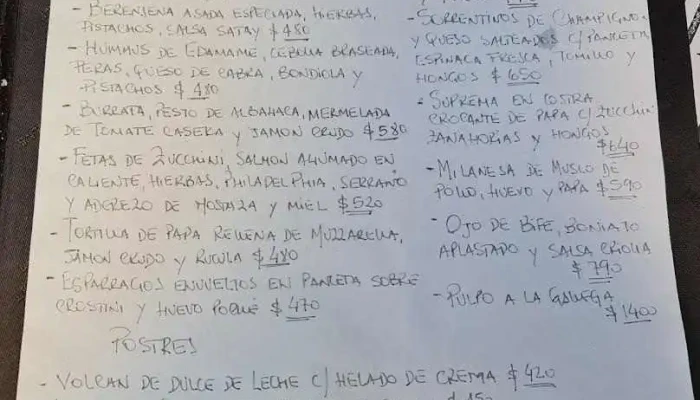 - BERENJENA ASADA ESPECIADA, HIERBAS,
PISTACHOS, SALSA SATAY $ 480
- HUMMUS DE EDAMAME, CEBOLLA BRASEADA,
PERAS, QUESO DE CABRA, BONDIOLA Y
PISTACHOS $ 480
- BURRATA, PESTO DE ALBAHACA, MERMELADA
DE TOMATE CASERA Y JAMON CRUDO $ 580
- FETAS DE ZUCCHINI, SALMON AHUMADO EN
CALIENTE, HIERBAS, PHILADELPHIA, SERRANO
Y ADEREZO DE MOSTAZA Y MIEL $ 520
- TORTILLA DE PAPA RELLENA DE MUZZARELLA,
JAMON CRUDO Y RUCULA $ 480
- ESPARRAGOS ENVUELTOS EN PANCETA SOBRE
CROSTINI Y HUEVO POCHÉ $ 470
- SORRENTINOS DE CHAMPIGNO
Y QUESO SALTEADOS C/PANCETA
ESPINACA FRESCA, TOMILLO Y
HONGOS $ 650
- SUPREMA EN COSTRA
CROCANTE DE PAPA C/ZUCCHINI
ZANAHORIAS Y HONGOS
$ 640
- MILANESA DE MUSLO DE
POLLO, HUEVO Y PAPA $ 590
- OJO DE BIFE, BONIATO
APLASTADO Y SALSA CRIOLLA
$ 790
- PULPO A LA GALLEGA
$ 1400
POSTRES
- VOLCAN DE DULCE DE LECHE C/ HELADO DE CREMA $ 420